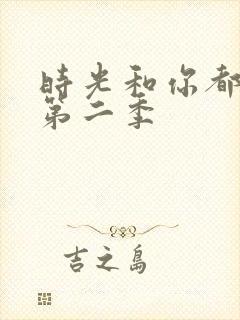 時光和你都
第二季
吉之島